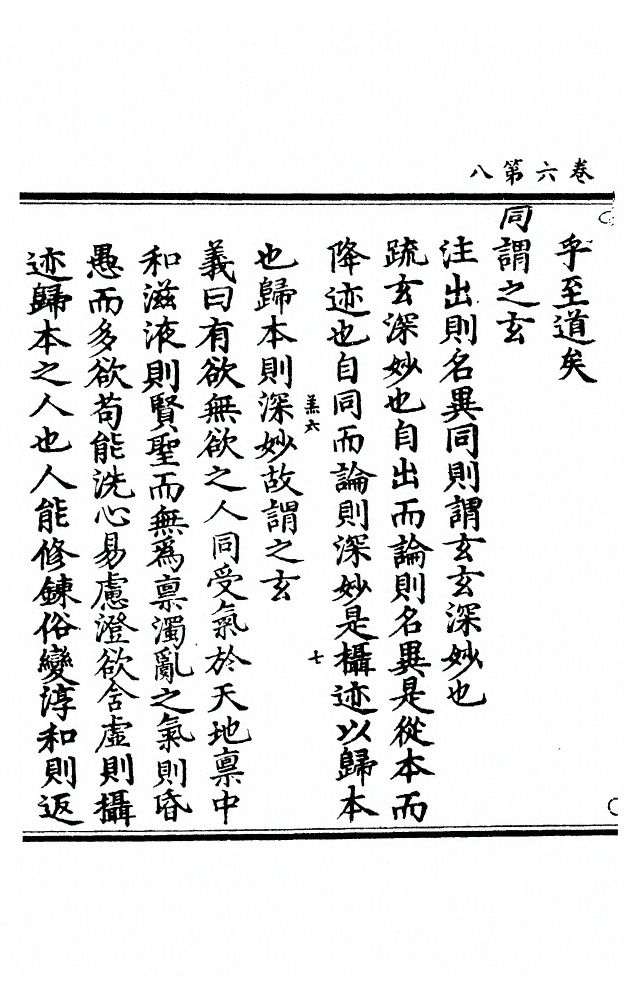 卷六第八
乎至道矣
同謂之玄
注出則名異同則謂玄玄深妙也
疏玄深妙也自出而論則名異是從本而
降迹也自同而論則深妙是攝迹以歸本
羔六
七
也歸本則深妙故謂之玄
義曰有欲無欲之人同受氣於天地稟中
和滋液則賢聖而無為稟濁亂之氣則昏
愚而多欲苟能洗心易慮澄欲含虛則攝
迹歸本之人也人能修鍊俗變淳和則返